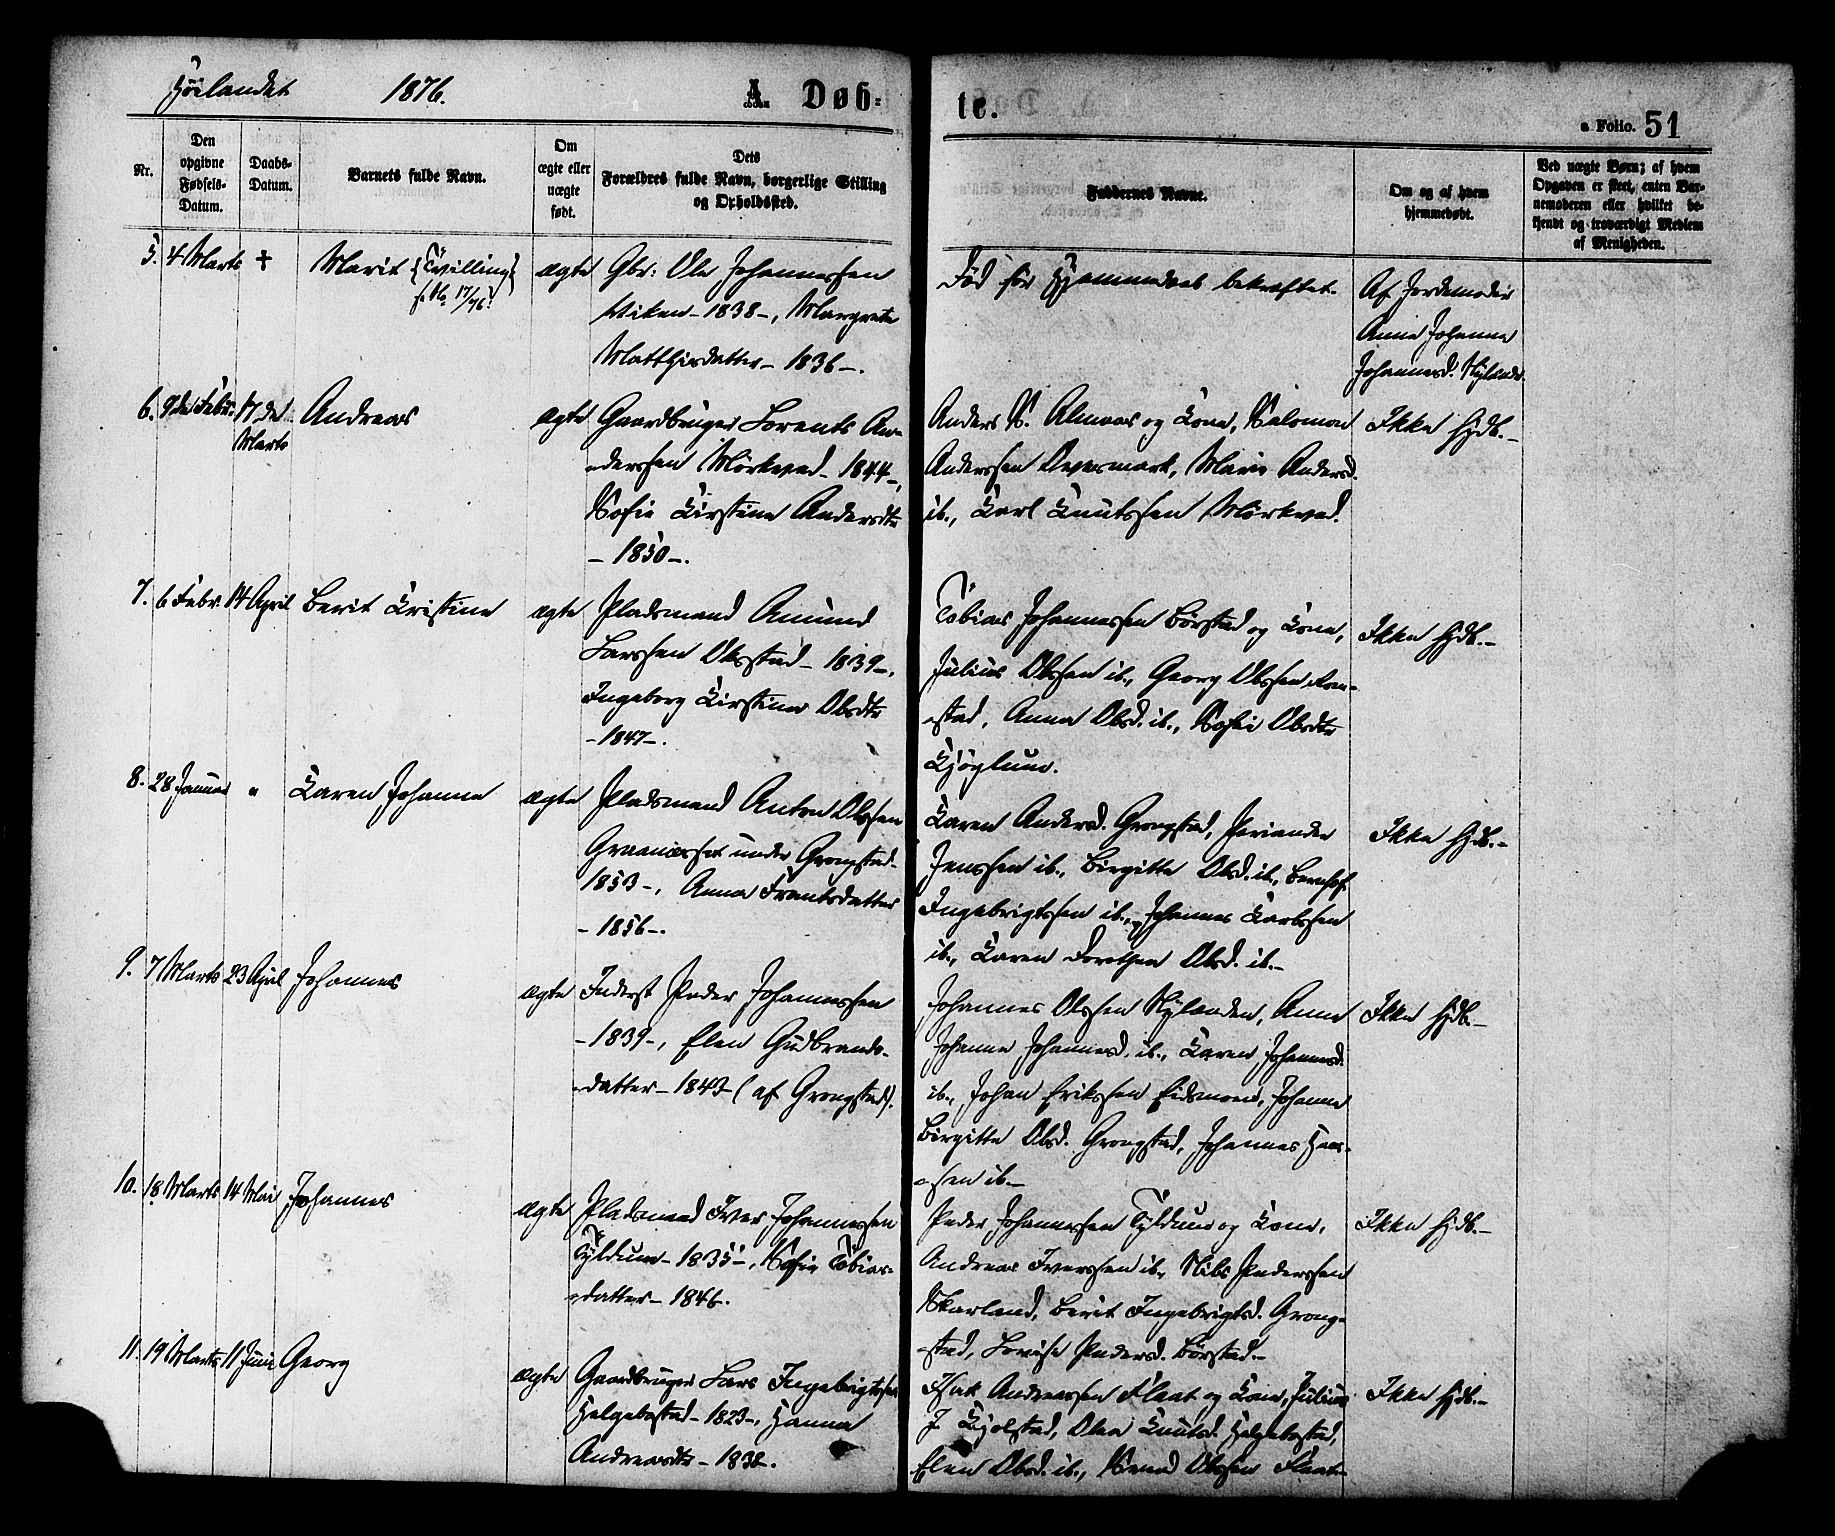 Høilandet 1876. A. Døb-
te.
a Folio. 51
Nr.
Den opgivne Fødsels-Datum.
Daabs-Datum.
Barnets fulde Navn.
Om ægte eller uægte født.
Dets Forældres fulde Navn, borgerlige Stilling og Opholdssted.
Faddernes Navne.
Om og af hvem hjemmedøbt.
Ved uægte Børn; af hvem Opgaven er skeet, enten Barnemoderen eller hvilket bekjendt og troværdigt Medlem af Menigheden.
5. 4 Marts + Marit {Tvilling} ægte Gbr: Ole Johannessen
17/76.
Viken - 1838 -, Margrete
Matthisdatter - 1836 -.
Død før Hjemmedaab bekræftet.
Af Jordemoder
Anne Johanna
Johannesd. Nylande.
6. 9de Febr. 17de Marts Andreas ægte Gaardbruger Lorents An-
derssen Mörkved - 1844 -,
Sofie Kirstine Andersdtr
- 1850 -.
Anders N. Almaas og Kone, Salomon
Anderssen Overmark, Marie Andersd.
ib., Karl Knutssen Mörkved.
Ikke Hjdb. -
7. 6 Febr. 14 April Berit Kristine ægte Pladsmand Amund
Larssen Olsstad - 1839 -,
Ingeborg Kirstine Olsdtr
- 1847 -.
Tobias Johannessen Börstad og Kone,
Julius Olssen ib., Georg Olssen Rom-
stad, Anna Olsd. ib., Sofie Olsdtr
Kjöglum.
Ikke Hjdb. -
8. 28 Januar " Karen Johanna ægte Pladsmand Anton Olssen
Graanæsset under Grongstad -
1853 -, Anna Frantsdatter
- 1856 -.
Karen Andersd. Grongstad, Periander
Jenssen ib., Birgitte Olsd. ib., Bernhof
Ingebrigtssen ib., Johannes Karlssen
ib., Karen Dorthea Olsd. ib. -
Ikke Hjdb. -
9. 7 Marts 23 April Johannes ægte Inderst Peder Johannessen
- 1839 -, Elen Gudbrands-
datter - 1843 (af Grongstad).
Johannes Olssen Nylanden, Anne
Johanna Johannesd. ib., Karen Johannesd.
ib., Johan Erikssen Eidsmoen, Johanna
Birgitte Olsd. Grongstad, Johannes Han-
sen ib. -
Ikke Hjdb. -
10. 18 Marts 14 Mai Johannes ægte Pladsmand Iver Johannessen
Tyldum - 1835 -, Sofie Tobias-
datter - 1846.
Peder Johannessen Tyldum og Kone,
Andreas Iverssen ib., Nils Pederssen
Skarland, Berit Ingebrigtsd. Grong-
stad, Lovise Pedersd. Börstad. -
Ikke Hjdb. -
11. 19 Marts 11 Juni Georg ægte Gaardbruger Lars Ingebrigtssen
Helgebostad - 1823 -, Hanna
Andreasdtr - 1838.
Isak Andreassen Flaat og Kone, Julius
J Kjolstad, Olea Knutsd. Helgebostad,
Elen Olsd. ib., Svend Olssen Flaat -
Ikke Hjdb. -